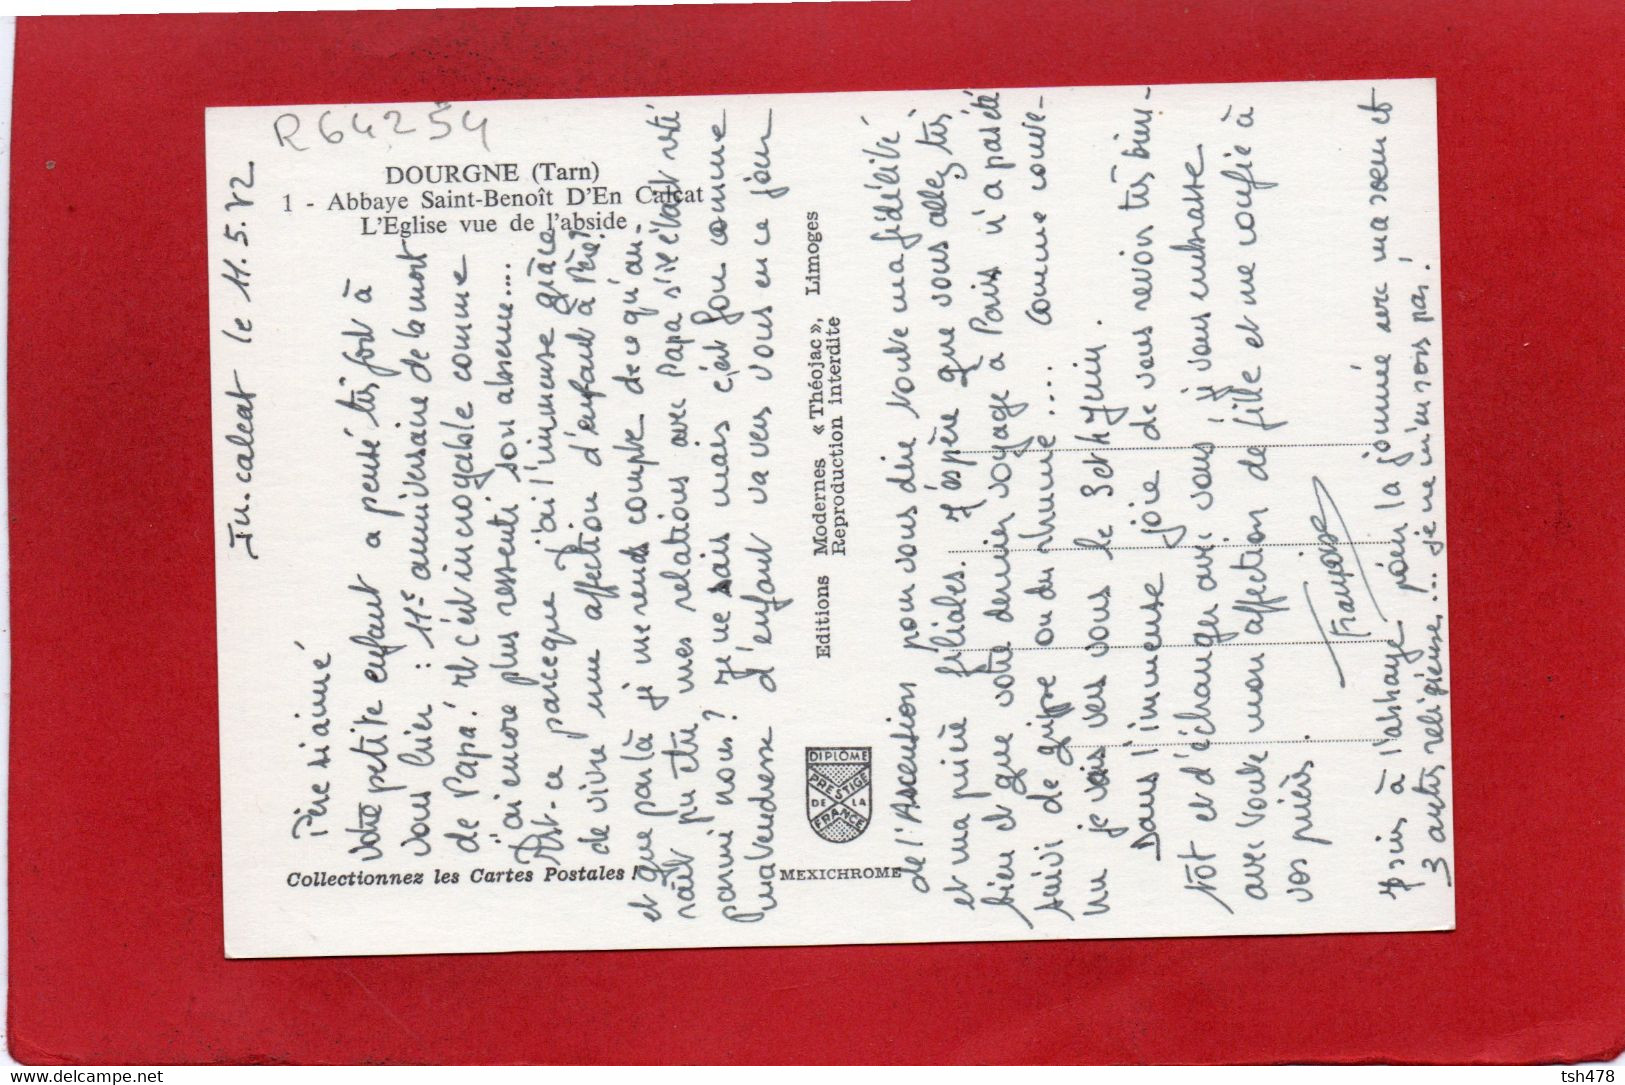 R64254
DOURGNE (Tarn)
1 - Abbaye Saint-Benoît D'En Calcat
L'Eglise vue de l'abside
Collectionnez les Cartes Postales !
Editions Modernes « Théojac », Limoges
Reproduction interdite
DIPLOME
PRESTIGE
DE LA
FRANCE
MEXICHROME
En. calcat le 11.5.72
Père aimé
Votre petite enfant a pensé très fort à
vous hier : 11e anniversaire de la mort
de Papa ! et c'est incroyable comme
j'ai encore plus ressenti son absence....
Est-ce parceque j'ai l'immense grâce
de vivre une affection d'enfant à Père?
et que par là je me rends compte de ce qu'au-
rait pu être mes relations avec Papa s'il était resté
parmi nous? Je ne sais mais c'est fou comme
ma tendresse d'enfant va vers vous en ce jour
de l'Ascension pour vous dire toute ma fidélité
et ma prière filiales. J'espère que vous allez très
bien et que votre dernier voyage à Paris n'a pas été
suivi de grippe ou du rhume.... comme
un je vais vers vous le 3 et 4 Juin.
Dans l'immense joie de vous revoir très bien-
tôt et d'échanger avec vous, je vous embrasse
avec toute mon affection de fille et me confie à
vos prières.
Françoise
Je suis à l'abbaye pour la journée avec ma soeur et
3 autres religieuses... je ne m'en vois pas !
delcampe.net
tsh478